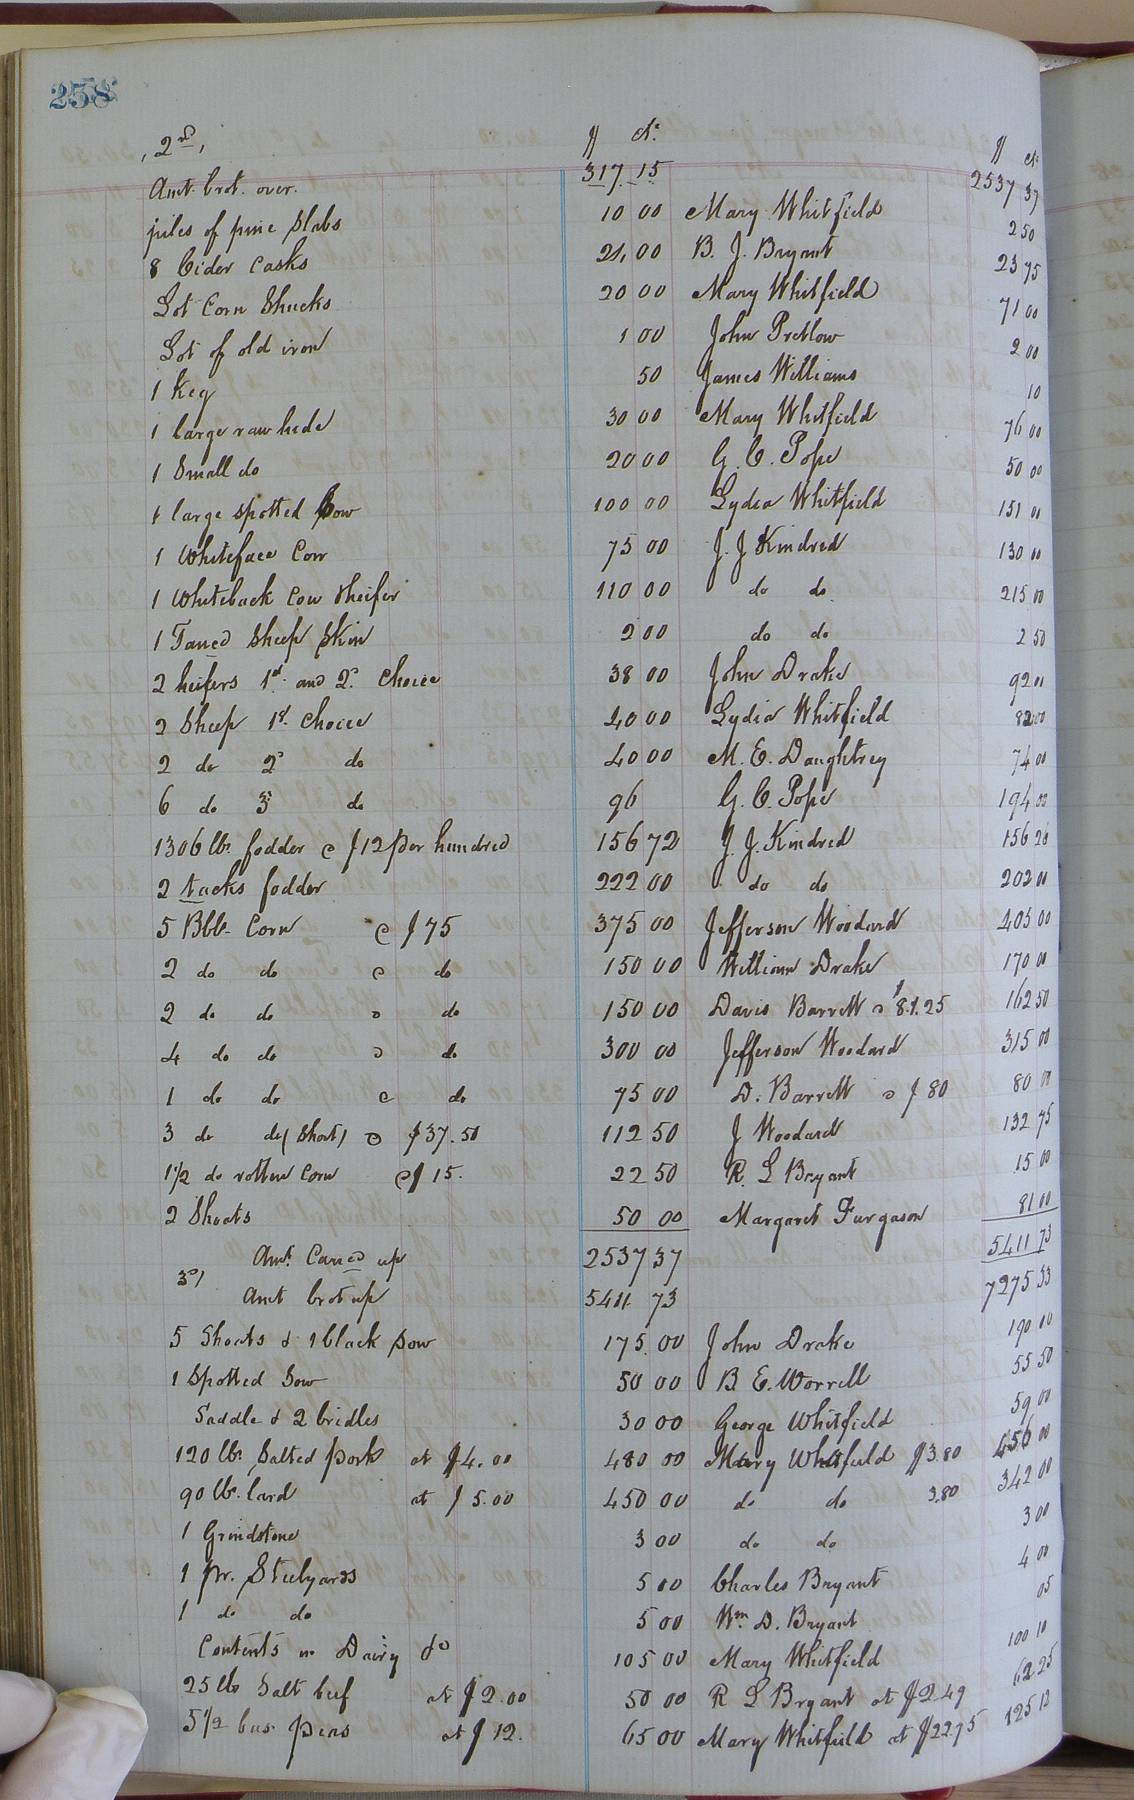 258
2nd $ cts $ cts
Amt. brot. over. 317 15 2537 37
piles of pine Slabs 10 00 Mary Whitfield 2 50
8 Cider Casks 24 00 B. J. Bryant 23 75
Lot Corn Shucks 20 00 Mary Whitfield 71 00
Lot of old iron 1 00 John Pretlow 2 00
1 Keg 50 James Williams 10
1 large raw hide 30 00 Mary Whitfield 76 00
1 Small do 20 00 G. C. Pope 50 00
1 large spotted Sow 100 00 Lydia Whitfield 151 00
1 Whiteface Cow 75 00 J. J. Kindred 130 00
1 Whiteback Cow & heifer 110 00 do do 215 00
1 Taned Sheep Skin 2 00 do do 2 50
2 heifers 1st and 2d Choice 38 00 John Drake 92 00
2 Sheep 1st Choice 40 00 Lydia Whitfield 82 00
2 do 2d do 40 00 M. E. Daughtrey 74 00
6 do 3d do 96 G. C. Pope 194 00
1306 lbs. fodder @ $12 per hundred 156 72 J. J. Kindred 156 26
2 tacks fodder 222 00 do do 202 00
5 Bbls. Corn @ $75 375 00 Jefferson Woodard 405 00
2 do do @ do 150 00 William Drake 170 00
2 do do @ do 150 00 Davis Barrett @ $81.25 162 50
4 do do @ do 300 00 Jefferson Woodard 315 00
1 do do @ do 75 00 D. Barrett @ $80 80 00
3 do do (Short) @ $37.50 112 50 J Woodard 132 75
1 1/2 do rotten Corn @ $15. 22 50 R. L Bryant 15 00
2 Shoats 50 00 Margaret Furgason 81 00
Amt. Caried up 2537 37 5411 73
3d/ Amt brot up 5411 73 7275 33
5 Shoats & 1 black Sow 175.00 John Drake 190 00
1 Spotted Sow 50 00 B. E. Worrell 55 50
Saddle & 2 bridles 30 00 George Whitfield 59 00
120 lbs. Salted pork at $4.00 480 00 Mary Whitfield $3.80 456 00
90 lbs. lard at $5.00 450 00 do do 3.80 342 00
1 Grindstone 3 00 do do 3 00
1 pr. Steelyards 5 00 Charles Bryant 4 00
1 do do 5 00 Wm. D. Bryant 05
Contents in Dairy do 105 00 Mary Whitfield 100 10
25 lbs Salt beef at $2.00 50 00 R L Bryant at $2.49 62 25
5 1/2 bus. peas at $12. 65 00 Mary Whitfield at $22.75 125 12